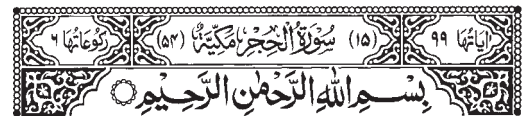 اٰیَاتُهَا ۹۹ (۱۵) سُوْرَةُ الْحِجْرِ مَكِّیَّةٌ (۵۴) رُكُوْعَاتُهَا ۶
بِسْمِ اللهِ الرَّحْمٰنِ الرَّحِیْمِ